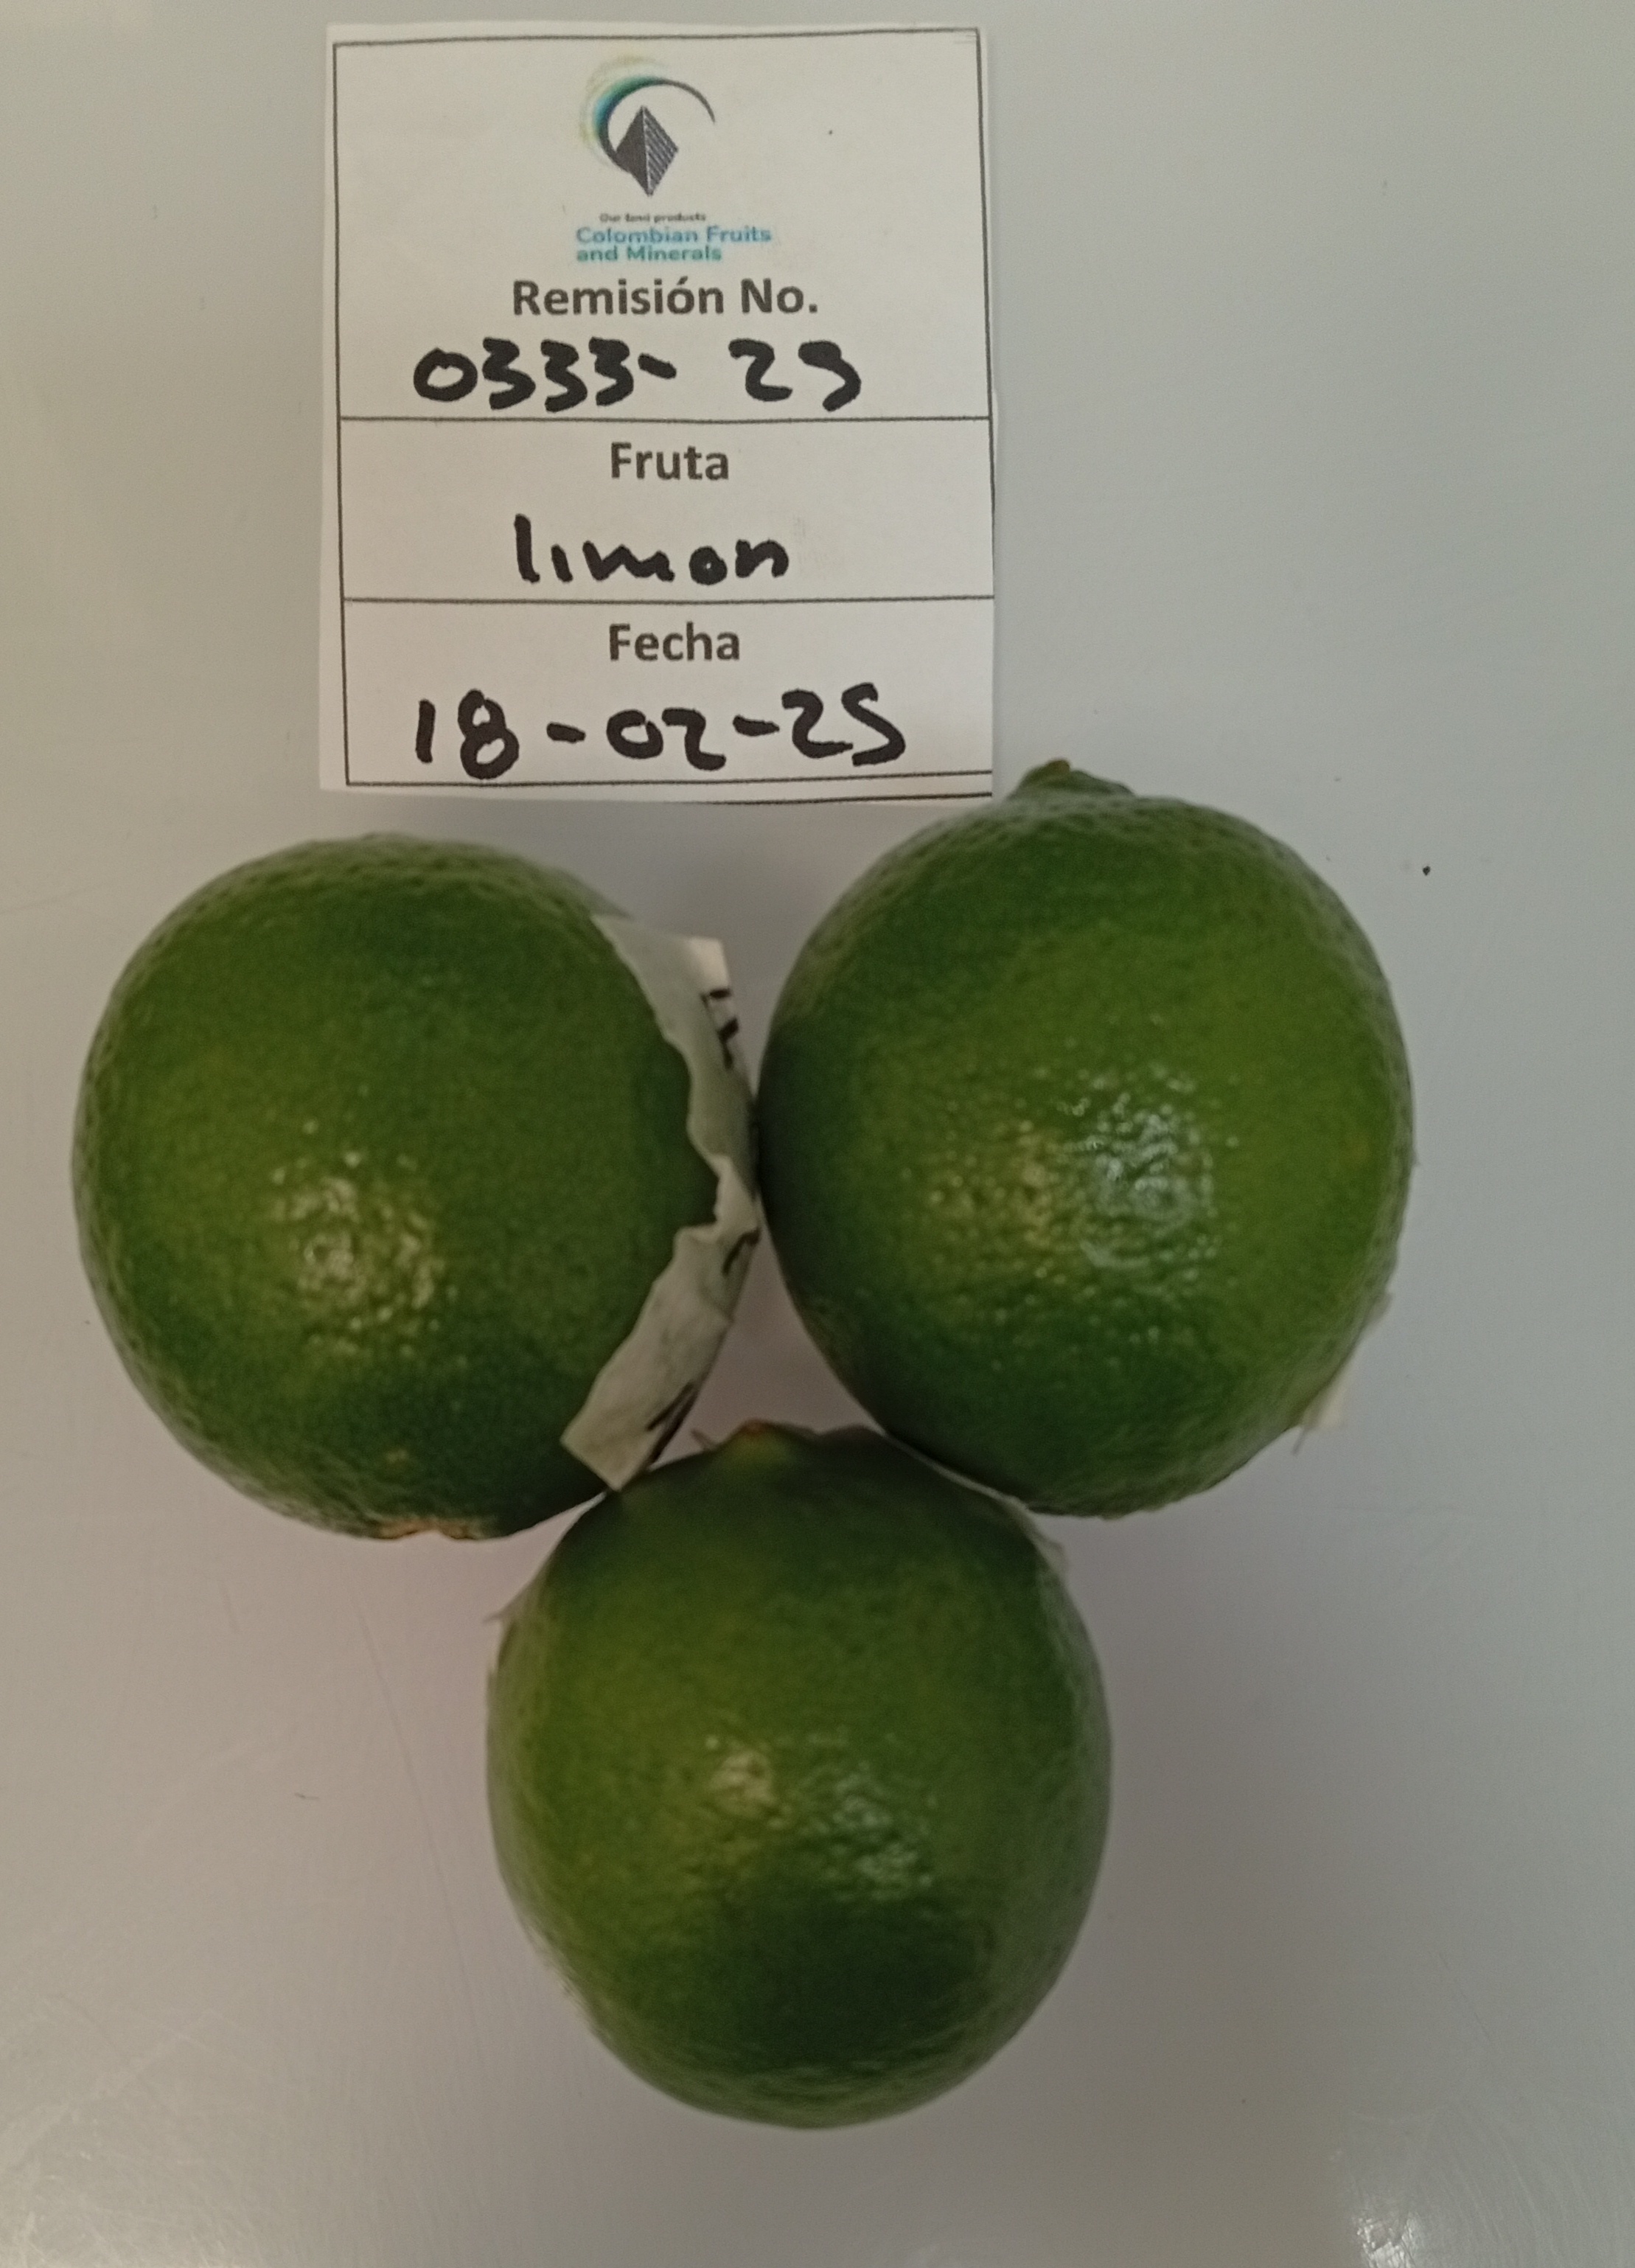 Our land products
Colombian Fruits
and Minerals
Remisión No.
0333- 29
Fruta
limon
Fecha
18-02-25